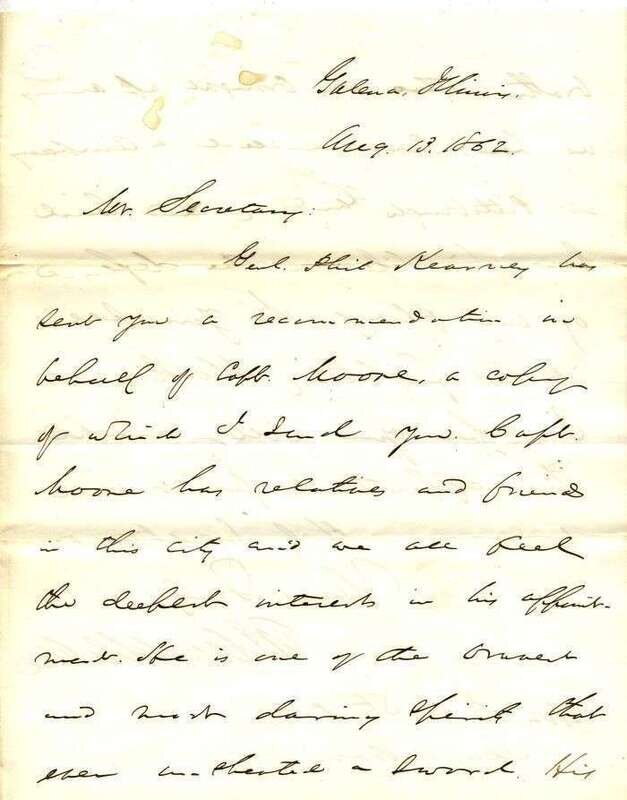 Galena, Illinois.
Aug. 13. 1862.
Mr. Secretary:
Genl. Phil Kearney has
sent you a recommendation in
behalf of Capt. Moore, a copy
of which I send you. Capt.
Moore has relatives and friends
in this city and we all feel
the deepest interests in his appoint-
ment. He is one of the bravest
and most daring spirits that
ever unsheated a sword. His